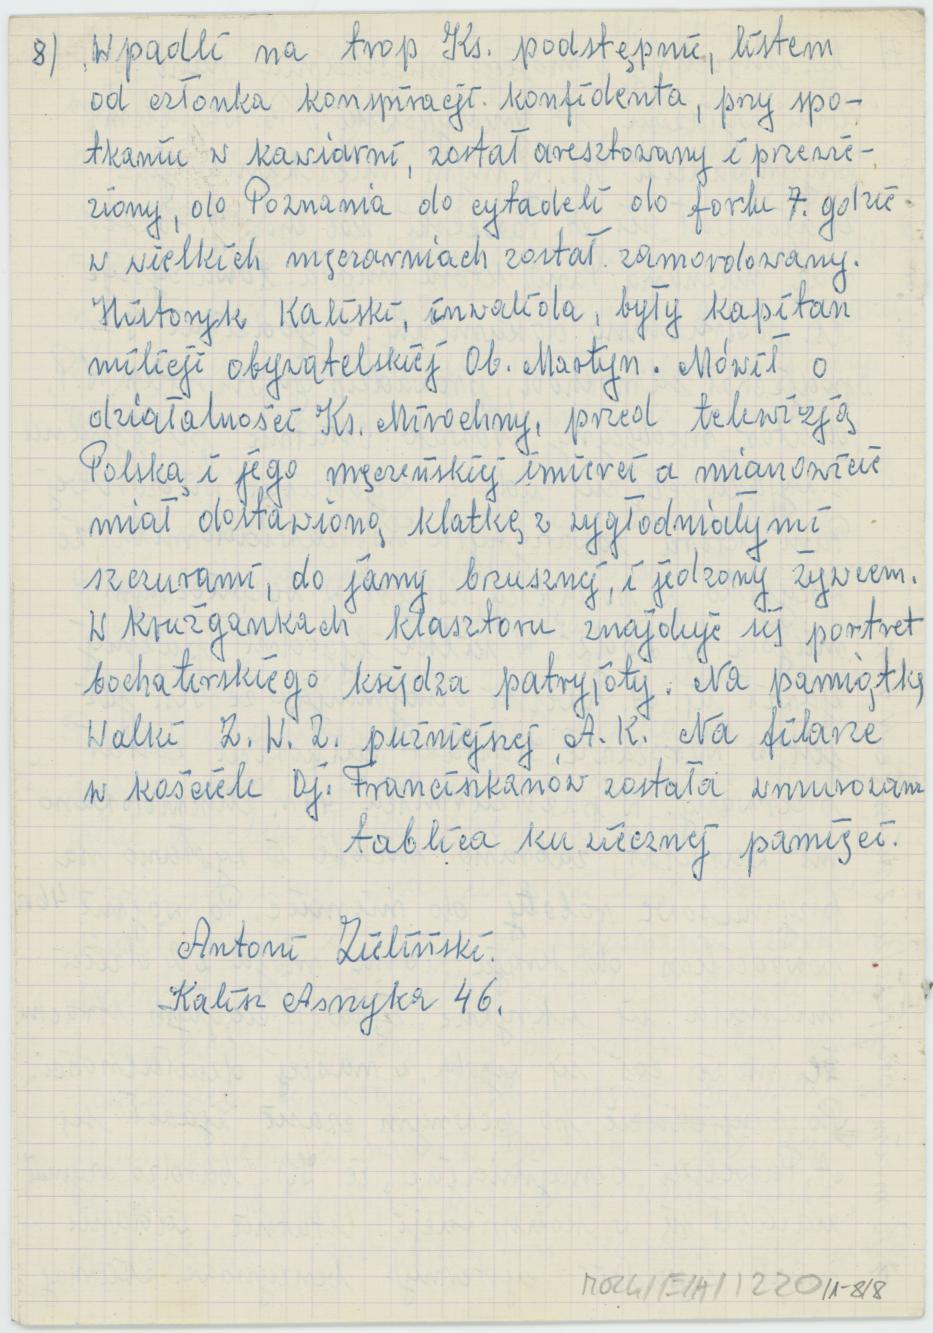 8) Wpadli na trop Ks. podstępnie, listem
od członka konspiracji. konfidenta, przy spo-
tkaniu w kawiarni, został aresztowany i przewie-
ziony, do Poznania do cytadeli do fortu 7. gdzie
w wielkich męczarniach został zamordowany.
Historyk Kaliski, inwalida, były kapitan
milicji obywatelskiej Ob. Martyn. Mówił o
działalności Ks. Mirochny, przed telewizją
Polską i jego męczeńskiej śmierci a mianowicie
miał dostawioną klatkę z wygłodniałymi
szczurami, do jamy brzusznej, i jedzony żywcem.
W krużgankach klasztoru znajduje się portret
bochaterskiego księdza patryjoty. Na pamiątkę
Walki Z. W. Z. puźniejszej A. K. Na filarze
w kościele Oj. Franciszkanów została wmurowana
tablica ku wiecznej pamięci.
Antoni Zieliński.
Kalisz Asnyka 46.
1220/1-8/8